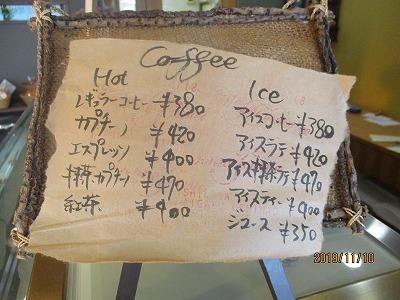 Coffee
Hot
レギュラーコーヒー ¥380
カプチーノ ¥420
エスプレッソ ¥400
抹茶カプチーノ ¥470
紅茶 ¥400
Ice
アイスコーヒー ¥380
アイスラテ ¥420
アイス抹茶ラテ ¥470
アイスティー ¥400
ジュース ¥350
2019/11/10